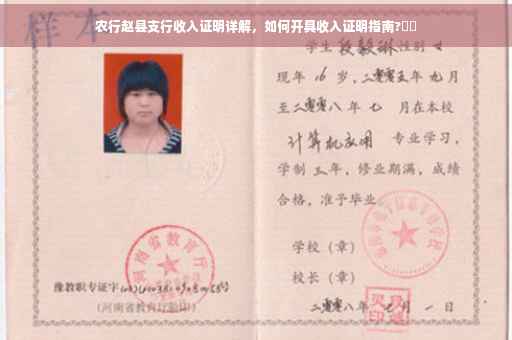 农行赵县支行收入证明详解，如何开具收入证明指南?
样本
学生 段毅琳 性别 女
现年 16 岁，二零零五年 九月
至二零零八年 七 月在本校
计算机应用 专业学习，
学制 三 年，修业期满，成绩
合格，准予毕业
学校（章）
校长（章）
二零零八年 月一日
河南省教育厅
豫教职专证字
(河南省教育厅验印)